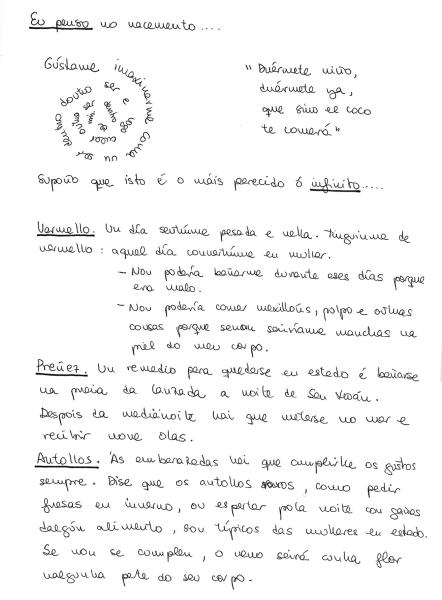 Eu penso no nacemento....
Gústame imaxinarme como un ser dentro doutro ser e logo de
"Duérmete niño,
duérmete ya,
que sino el coco
te comerá"
Supoño que isto é o máis parecido ó infinito.....
Vermello. Un día sentinme pesada e vella. Tinguinme de
vermello: aquel día convertinme en muller.
- Non podería bañarme durante eses días porque
era malo.
- Non podería comer mexillóns, polpo e outras
cousas porque senón sairíanme manchas na
pel do meu corpo.
Preñez. Un remedio para quedarse en estado é bañarse
na praia da Lanzada a noite de San Xoán.
Despois da medianoite hai que meterse no mar e
recibir nove olas.
Antollos. Ás embarazadas hai que cumplirlle os gustos
sempre. Dise que os antollos raros, como pedir
fresas en inverno, ou espertar pola noite con ganas
dalgún alimento, son típicos das mulleres en estado.
Se non se cumplen, o neno sairá cunha flor
nalgunha parte do seu corpo.